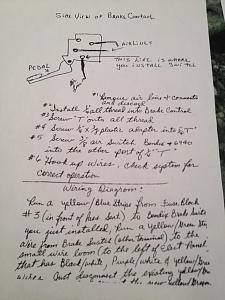 Side View of Brake Control
AIRLINES
THIS LINE IS WHERE
YOU INSTALL SWITCH
PEDAL
#1 Remove air lines & connects
and discard
#2 Install ¼" all thread into Brake Control
#3 Screw 'T' onto all thread
#4 Screw ¼ x ⅛ plastic adapter into ¼ T'
#5 Screw ⅛ air Switch Bendix #6940
into the other port of ¼" 'T'
#6 Hook up wires. Check system for
correct operation
Wiring Diagram:
Run a Yellow/Blue Stripe from Fuse Block
#3 (in front of pass Seat) to Bendix Brake Switch
you just installed, Run a Yellow/Green Stripe
wire from Brake Switch (other terminal) to the
small wire loom (to the left of Dash Panel
that has Black/white, Purple/white & Yellow/Green
wires. Just disconnect the existing yellow/
the new Yellow/Green